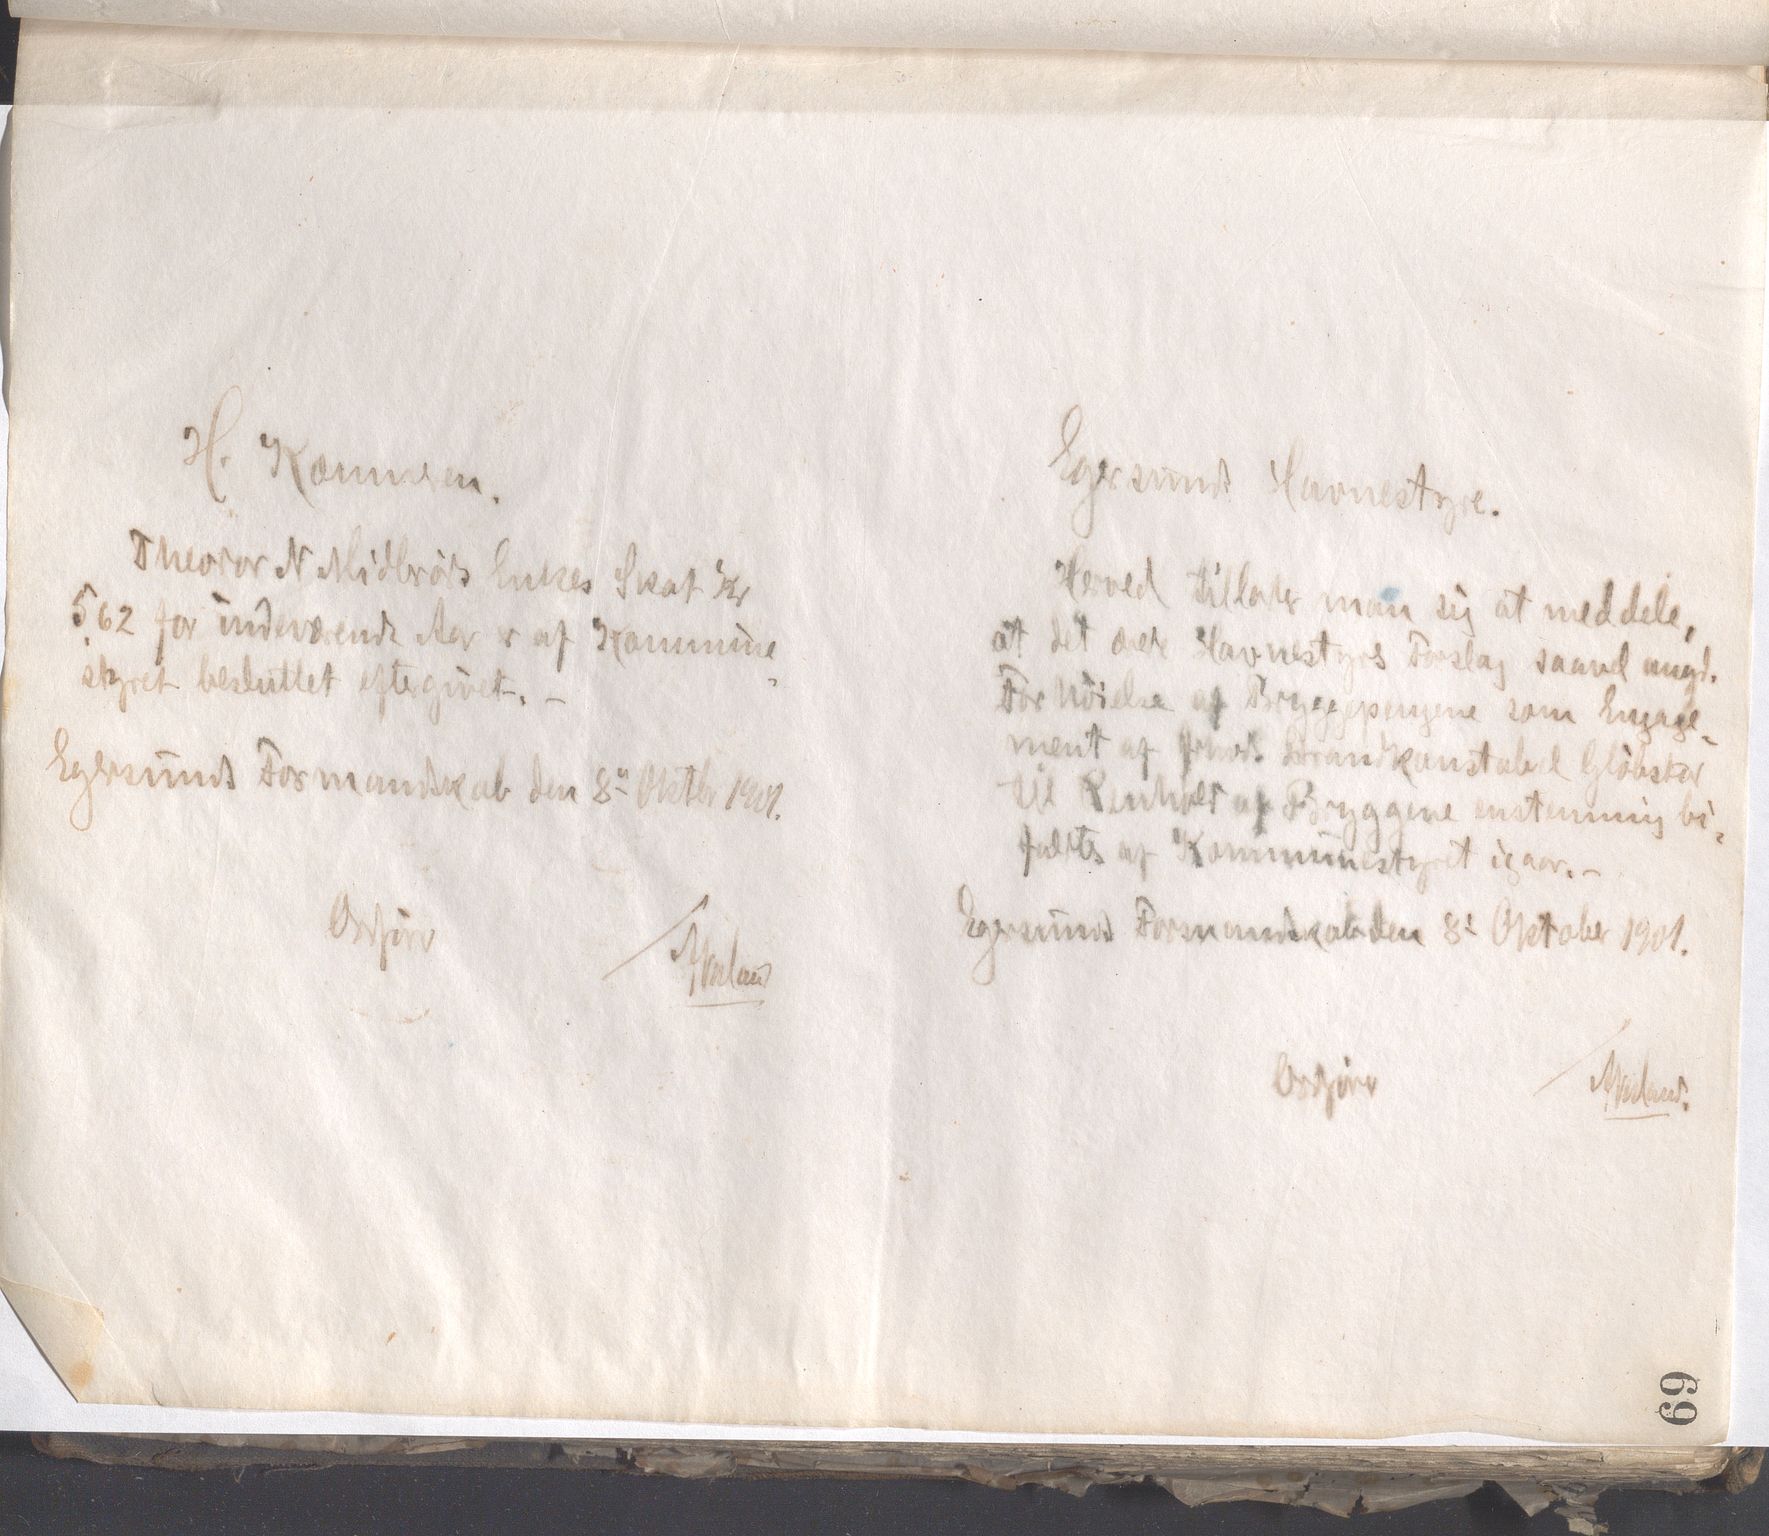 H. Kæmneren.
Theodor N Midbrøds Enkes Skat Kr
5,62 for indeværende Aar er af Kommune-
styret besluttet eftergivet. –
Egersunds Formandskab den 8de Oktbr 1901.
Maland
Egersunds Havnestyre.
Herved tillader man sig at meddele,
at det ærede Havnestyres Forslag saavel angd.
Forhöielse af Bryggepengene som Engage-
ment af Strandkonstabel
til Renhold af Bryggene enstemmig bi-
faldts af Kommunestyret igaar. –
Egersunds Formandskab den 8de Oktober 1901.
Maland.
69